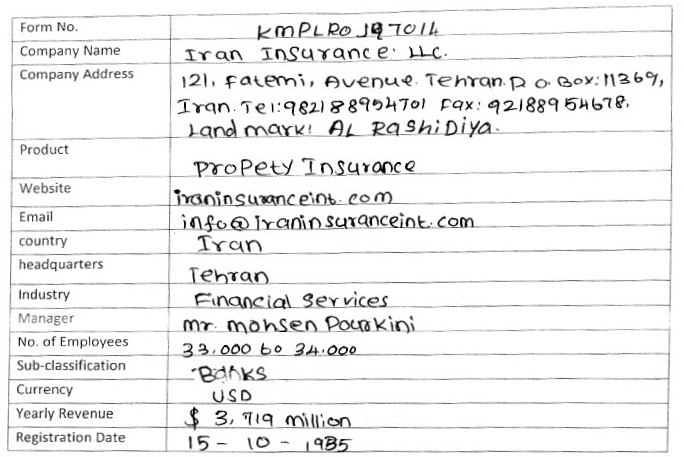 Form No. KMPLRO197014
Company Name Iran Insurance. LLC.
Company Address 121, Fatemi, Avenue. Tehran. P O. Box: 11369,
Iran. Tel: 982188954701 Fax: 92188954678,
Land mark: AL Rashidiya.
Product Propety Insurance
Website iraninsuranceint.com
Email info@iraninsuranceint.com
country Iran
headquarters Tehran
Industry Financial Services
Manager mr. mohsen Pourkini
No. of Employees 33,000 to 34,000
Sub-classification Banks
Currency USD
Yearly Revenue $ 3,719 million
Registration Date 15 - 10 - 1935